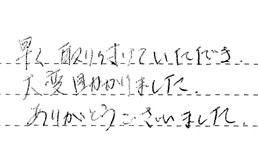 早く取り付けていただき、
大変助かりました。
ありがとうございました。